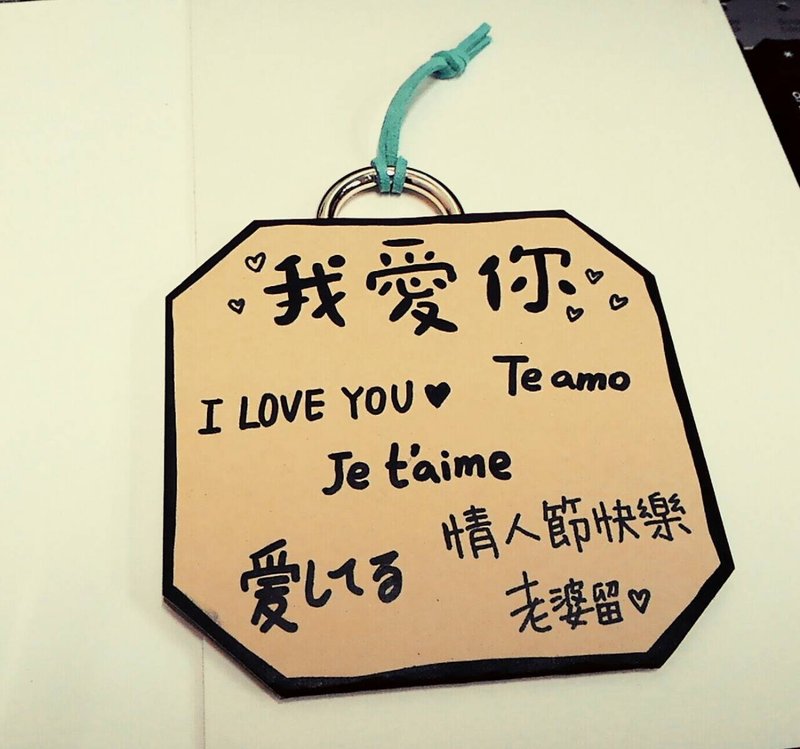 我愛你
I LOVE YOU♥
Te amo
Je t'aime
愛してる
情人節快樂
老婆留♡